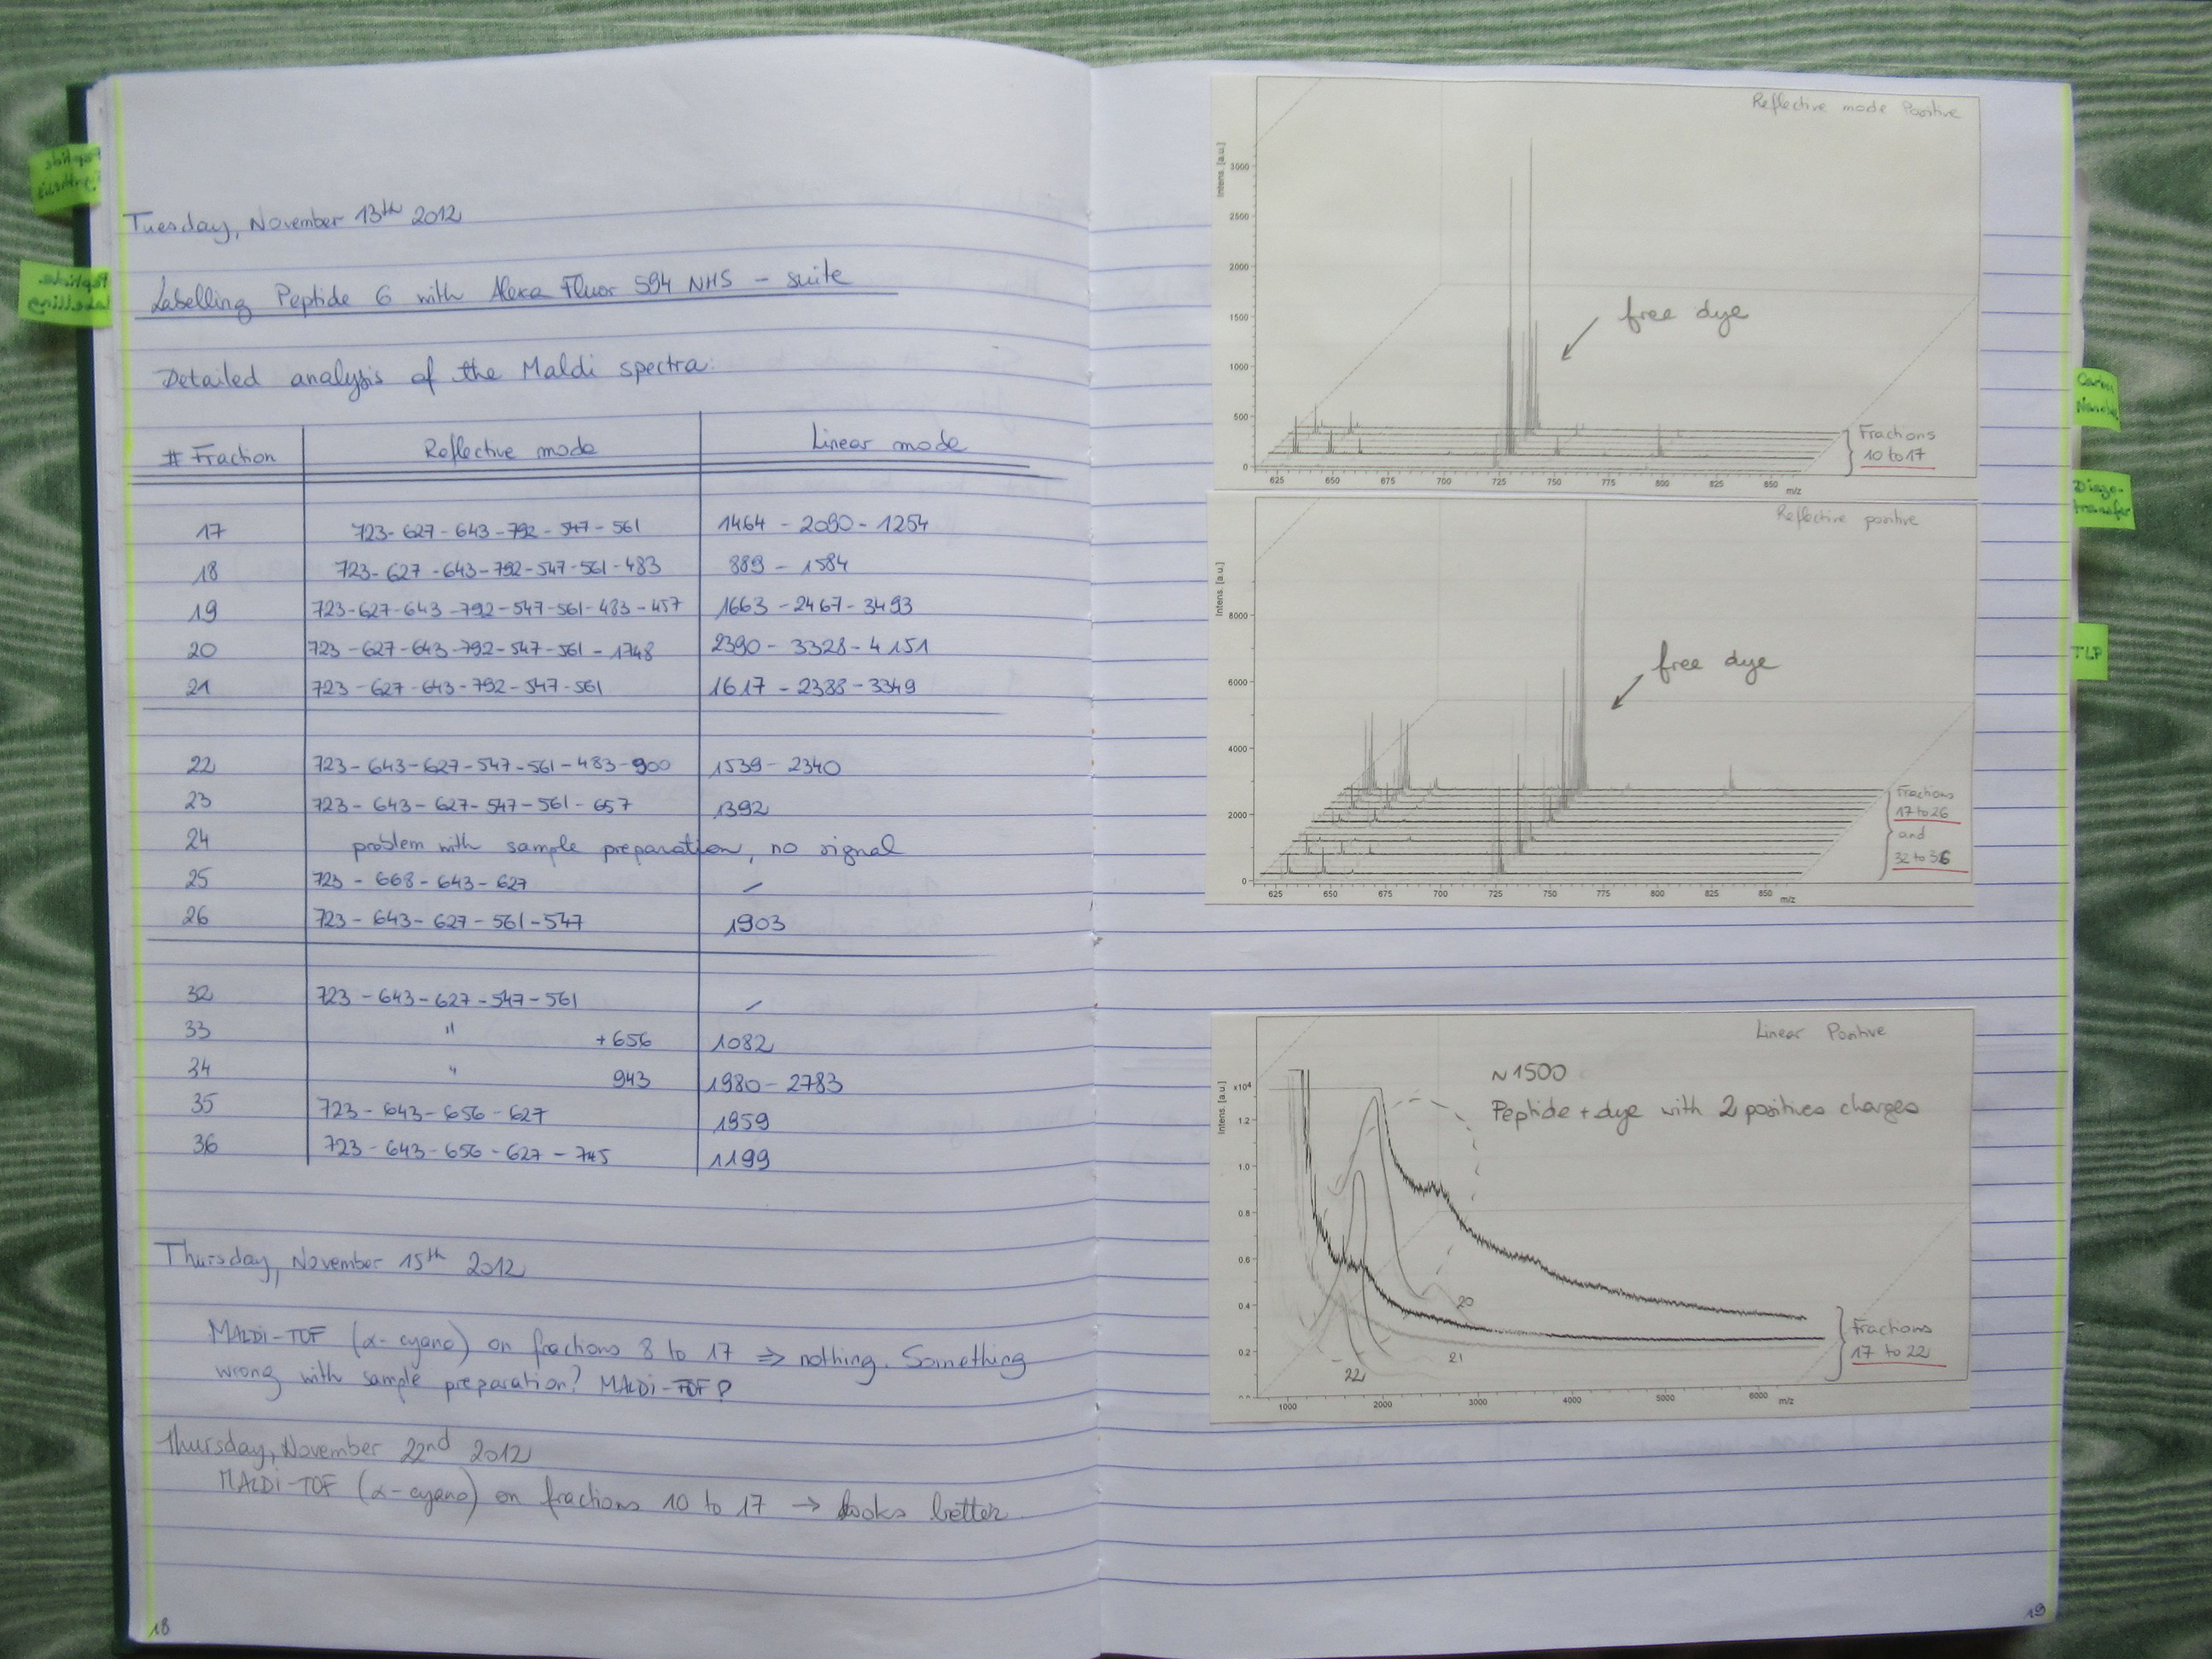 Peptide
Synthesis
Peptide
Labelling
Tuesday, November 13th 2012
Labelling Peptide 6 with Alexa Fluor 594 NHS - suite
Detailed analysis of the Maldi spectra:
# Fraction Reflective mode Linear mode
17 723 - 627 - 643 - 792 - 547 - 561 1464 - 2090 - 1254
18 723 - 627 - 643 - 792 - 547 - 561 - 483 889 - 1584
19 723 - 627 - 643 - 792 - 547 - 561 - 483 - 457 1663 - 2467 - 3493
20 723 - 627 - 643 - 792 - 547 - 561 - 1748 2390 - 3328 - 4151
21 723 - 627 - 643 - 792 - 547 - 561 1617 - 2388 - 3349
22 723 - 643 - 627 - 547 - 561 - 483 - 900 1539 - 2340
23 723 - 643 - 627 - 547 - 561 - 657 1392
24 problem with sample preparation, no signal
25 723 - 668 - 643 - 627 /
26 723 - 643 - 627 - 561 - 547 1903
32 723 - 643 - 627 - 547 - 561 /
33 " + 656 1082
34 " 943 1980 - 2783
35 723 - 643 - 656 - 627 1959
36 723 - 643 - 656 - 627 - 745 1199
Thursday, November 15th 2012
MALDI-TOF (α-cyano) on fractions 8 to 17 ⇒ nothing. Something
wrong with sample preparation? MALDI-TOF?
Thursday, November 22nd 2012
MALDI-TOF (α-cyano) on fractions 10 to 17 → looks better
18
Reflective mode Positive
Intens. [a.u.]
3000
2500
2000
1500
1000
500
0
free dye
Fractions
10 to 17
625 650 675 700 725 750 775 800 825 850 m/z
Reflective positive
Intens. [a.u.]
8000
6000
4000
2000
0
free dye
Fractions
17 to 26
and
32 to 36
625 650 675 700 725 750 775 800 825 850 m/z
Linear Positive
Intens. [a.u.]
x10⁴
1.2
1.0
0.8
0.6
0.4
0.2
0.0
~1500
Peptide + dye with 2 positives charges
20
21
22
Fractions
17 to 22
1000 2000 3000 4000 5000 6000 m/z
19
Diazo-
transfer
TLP